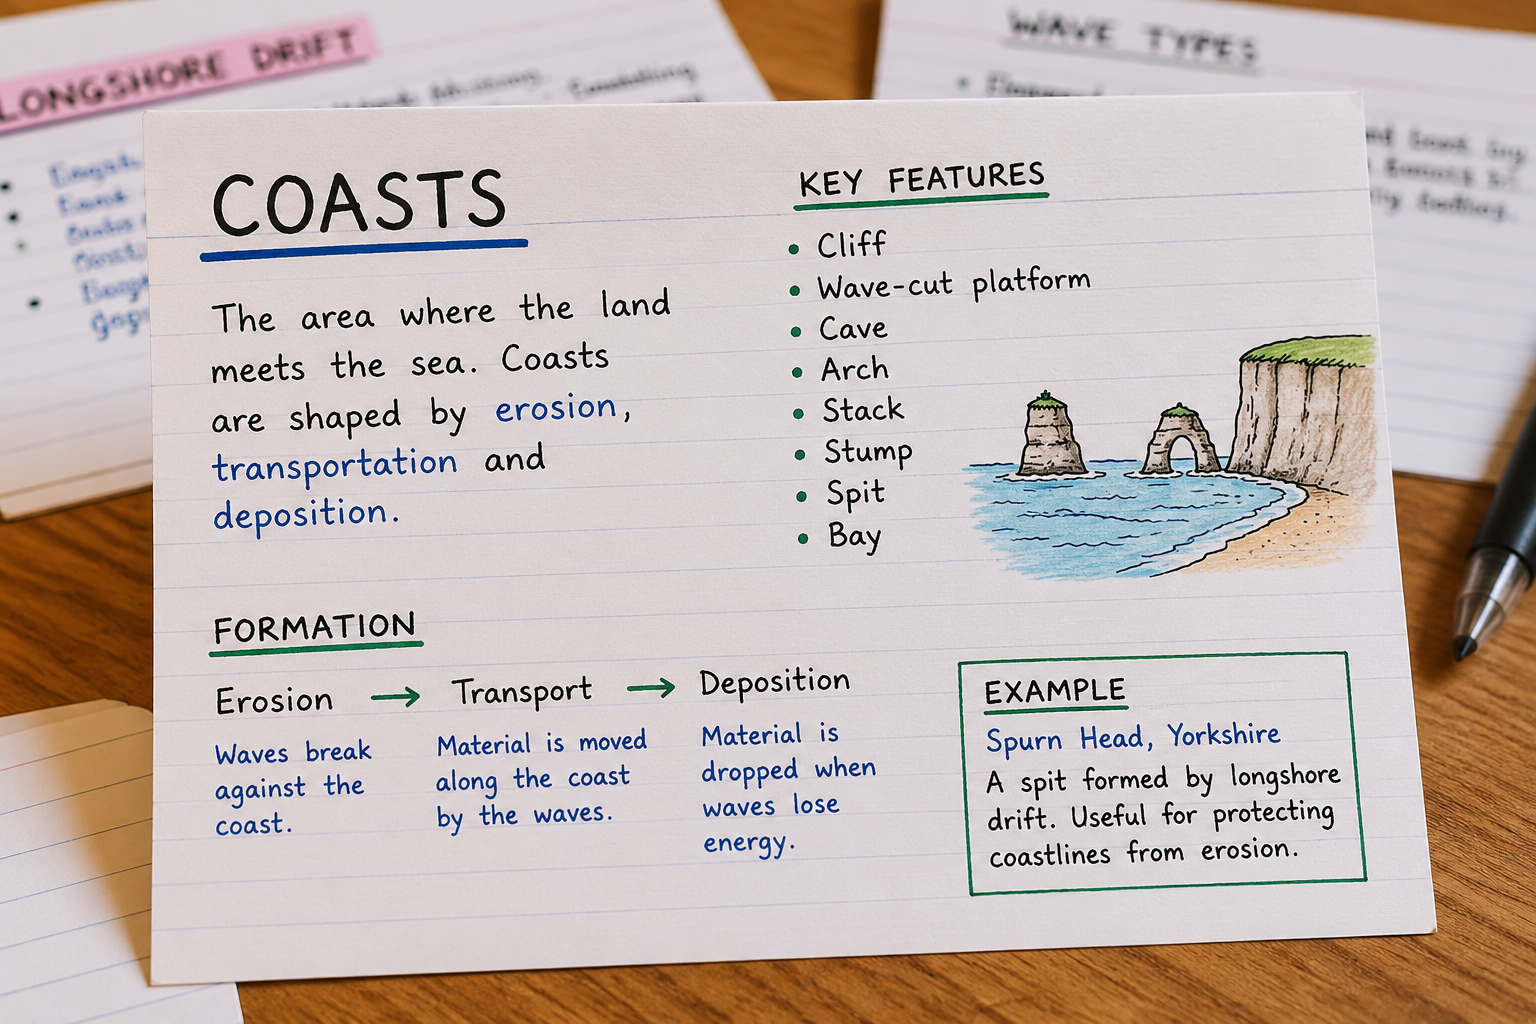 LONGSHORE DRIFT
WAVE TYPES
COASTS
The area where the land
meets the sea. Coasts
are shaped by erosion,
transportation and
deposition.
KEY FEATURES
• Cliff
• Wave-cut platform
• Cave
• Arch
• Stack
• Stump
• Spit
• Bay
FORMATION
Erosion → Transport → Deposition
Waves break
against the
coast.
Material is moved
along the coast
by the waves.
Material is
dropped when
waves lose
energy.
EXAMPLE
Spurn Head, Yorkshire
A spit formed by longshore
drift. Useful for protecting
coastlines from erosion.